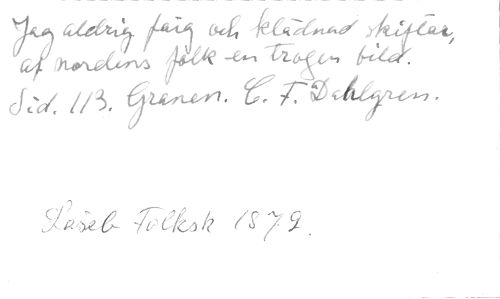 Jag aldrig färg och klädnad skiftar,
af nordens folk en trogen bild.
Sid. 113. Granen. C. F. Dahlgren.
Läseb Folksk 1872.